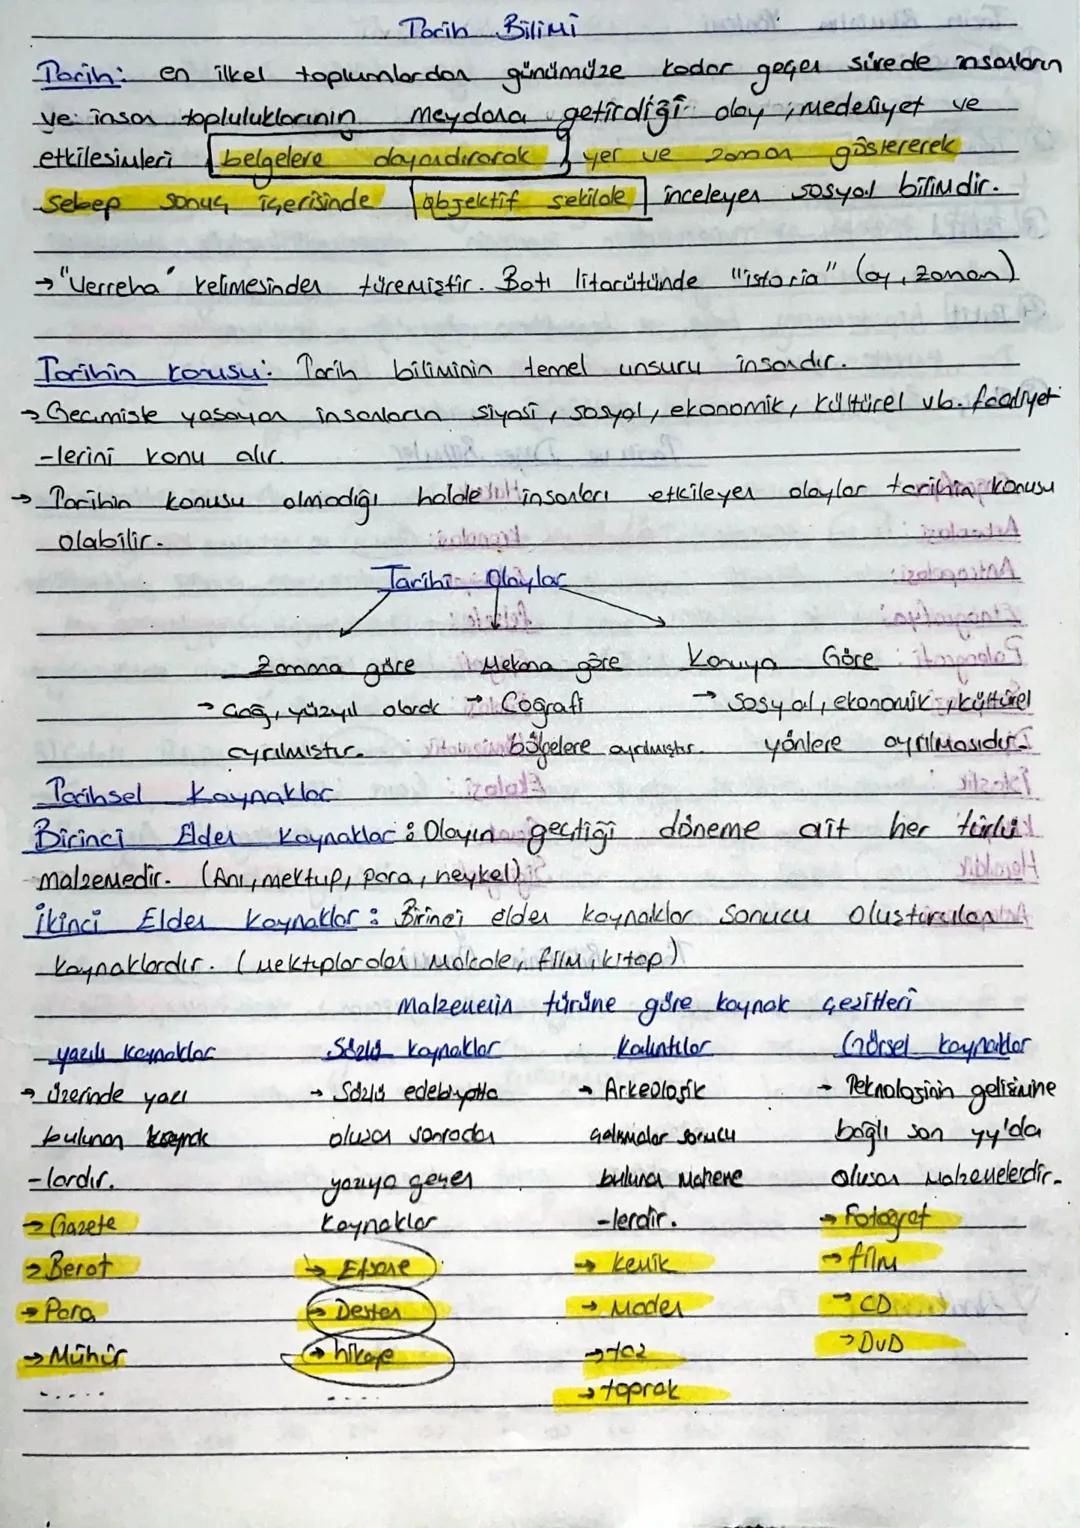 Tarih Bilimi
Tarih: en ilkel toplumlardan günümüze kadar geçen sürede insanların
ve insan topluluklarının meydana getirdiği olay, medeniyet ve
etkilesimleri belgelere dayandırarak, yer ve zaman göstererek
sebep sonuç içerisinde objektif sekilde inceleyen sosyal bilimdir.
→ "Verreha" kelimesinden türemiştir. Batı litarütünde "istoria" (ay, zaman)
Tarihin konusu: Tarih biliminin temel unsuru insandır.
→ Gecmiste yasayan insanların siyasi, sosyal, ekonomik, kültürel vb. faaliyet
-lerini konu alır.
→ Tarihin konusu olmadığı halde insanları etkileyen olaylar tarihin konusu
olabilir.
Tarihi Olaylar
Zamana göre Mekana göre Konuya Göre
→ Çağ, yüzyıl olarak → Coğrafi → Sosyal, ekonomik, kültürel
ayrılmıstır. bölgelere ayrılmıştır. yönlere ayrılmasıdır.
Tarihsel Kaynaklar
Birinci Elden Kaynaklar: Olayın geçtiği döneme ait her türlü
malzemedir. (Anı, mektup, para, heykel)
İkinci Elden Kaynaklar: Birinci elden kaynaklar sonucu olusturulan
kaynaklardır. (Mektuplardan makale, film, kitap)
Malzemenin türüne göre kaynak çeşitleri
yazılı kaynaklar Sözlü kaynaklar Kalıntılar Görsel kaynaklar
→ üzerinde yazı → Sözlü edebiyatta → Arkeolojik → Teknolojinin gelisimine
bulunan kaynak olusan sonradan çalısmalar sonucu bağlı son yy'da
-lardır. yazıya geçen bulunan malzeme olusan malzemelerdir.
→ Gazete kaynaklar -lerdir. → Fotograf
→ Berat → Efsane → kemik → film
→ Para → Destan → Maden → CD
→ Mühür → hikaye → taş → DVD
..... .... → toprak